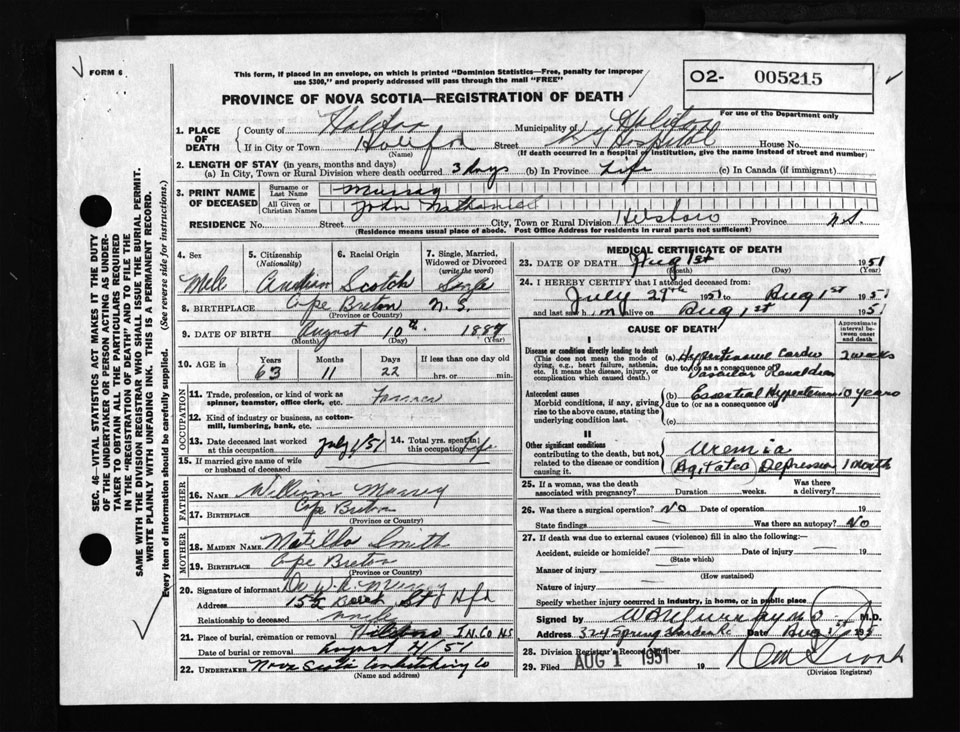 FORM 6
This form, if placed in an envelope, on which is printed "Dominion Statistics—Free, penalty for improper
use $300," and properly addressed will pass through the mail "FREE"
O2- 005215
For use of the Department only
PROVINCE OF NOVA SCOTIA—REGISTRATION OF DEATH
1. PLACE OF DEATH
County of Halifax Municipality of Halifax
If in City or Town Halifax Street Hospital House No.
(Name) (If death occurred in a hospital or institution, give the name instead of street and number)
2. LENGTH OF STAY (in years, months and days)
(a) In City, Town or Rural Division where death occurred 3 days (b) In Province Life (c) In Canada (if immigrant)
3. PRINT NAME OF DECEASED
Surname or Last Name Murray
All Given or Christian Names John Nathaniel
RESIDENCE No. Street City, Town or Rural Division Province N.S.
(Residence means usual place of abode. Post Office Address for residents in rural parts not sufficient)
4. Sex
5. Citizenship (Nationality)
6. Racial Origin
7. Single, Married, Widowed or Divorced (write the word)
Scotch
8. BIRTHPLACE Cape Breton N.S.
(Province or Country)
9. DATE OF BIRTH August 10th 1887
(Month) (Day) (Year)
10. AGE in Years Months Days If less than one day
63 11 22 hrs. or min.
OCCUPATION
11. Trade, profession, or kind of work as spinner, teamster, office clerk, etc. Farmer
12. Kind of industry or business, as cotton-mill, lumbering, bank, etc.
13. Date deceased last worked at this occupation July 1/51
14. Total yrs. spent in this occupation Life
15. If married give name of wife or husband of deceased
FATHER
16. NAME William Murray
17. BIRTHPLACE Cape Breton
(Province or Country)
MOTHER
18. MAIDEN NAME Matilda Smith
19. BIRTHPLACE Cape Breton
(Province or Country)
20. Signature of informant Murray
Address 155 St Hfx
Relationship to deceased
21. Place of burial, cremation or removal
Date of burial or removal August 4/51
22. UNDERTAKER Nova Scotia Co
(Name and address)
MEDICAL CERTIFICATE OF DEATH
23. DATE OF DEATH Aug 1st 1951
(Month) (Day) (Year)
24. I HEREBY CERTIFY that I attended deceased from:
July 29th 1951 to Aug 1st 1951
and last saw him alive on Aug 1st 1951
CAUSE OF DEATH
Approximate interval between onset and death
I
Disease or condition directly leading to death
(This does not mean the mode of dying, e.g., heart failure, asthenia, etc. It means the disease, injury, or complication which caused death.)
(a) Hypertensive Cardio 2 weeks
due to (or as a consequence of)
Antecedent causes
Morbid conditions, if any, giving rise to the above cause, stating the underlying condition last.
(b) Essential Hypertension 10 years
due to (or as a consequence of)
(c)
II
Other significant conditions contributing to the death, but not related to the disease or condition causing it.
Uremia
Agitated Depression 1 Month
25. If a woman, was the death associated with pregnancy? Duration weeks. Was there a delivery?
26. Was there a surgical operation? No Date of operation 19
State findings Was there an autopsy? No
27. If death was due to external causes (violence) fill in also the following:—
Accident, suicide or homicide? Date of injury 19
(State which)
Manner of injury
(How sustained)
Nature of injury
Specify whether injury occurred in industry, in home, or in public place
Signed by M.D.
Address 324 Spring Garden Date Aug
28. Division Registrar's Record Number
29. Filed AUG 1 1951 19
(Division Registrar)
SEC. 46—VITAL STATISTICS ACT MAKES IT THE DUTY
OF THE UNDERTAKER OR PERSON ACTING AS UNDER-
TAKER TO OBTAIN ALL THE PARTICULARS REQUIRED
IN THE "REGISTRATION OF DEATH" AND TO FILE THE
SAME WITH THE DIVISION REGISTRAR WHO SHALL ISSUE THE BURIAL PERMIT.
WRITE PLAINLY WITH UNFADING INK. THIS IS A PERMANENT RECORD.
Every item of information should be carefully supplied. (See reverse side for instructions.)